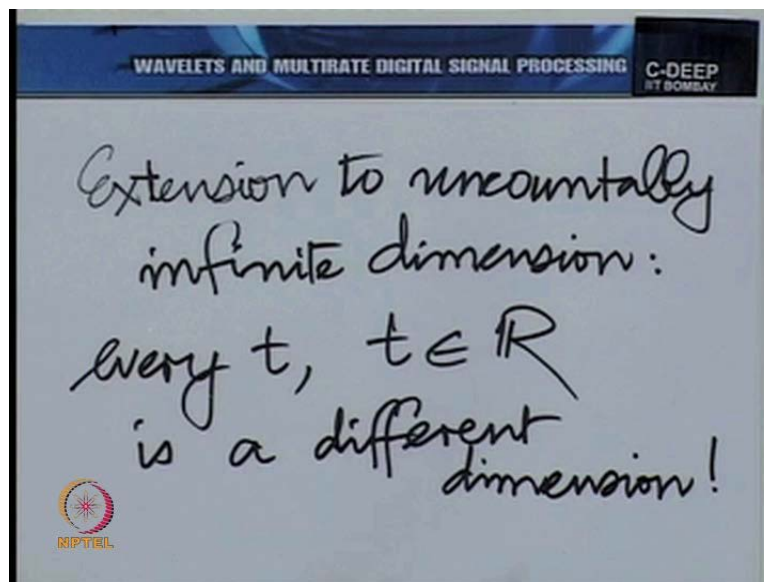 WAVELETS AND MULTIRATE DIGITAL SIGNAL PROCESSING
C-DEEP
IIT BOMBAY
Extension to uncountably
infinite dimension:
every t, t ∈ ℝ
is a different
dimension!
NPTEL